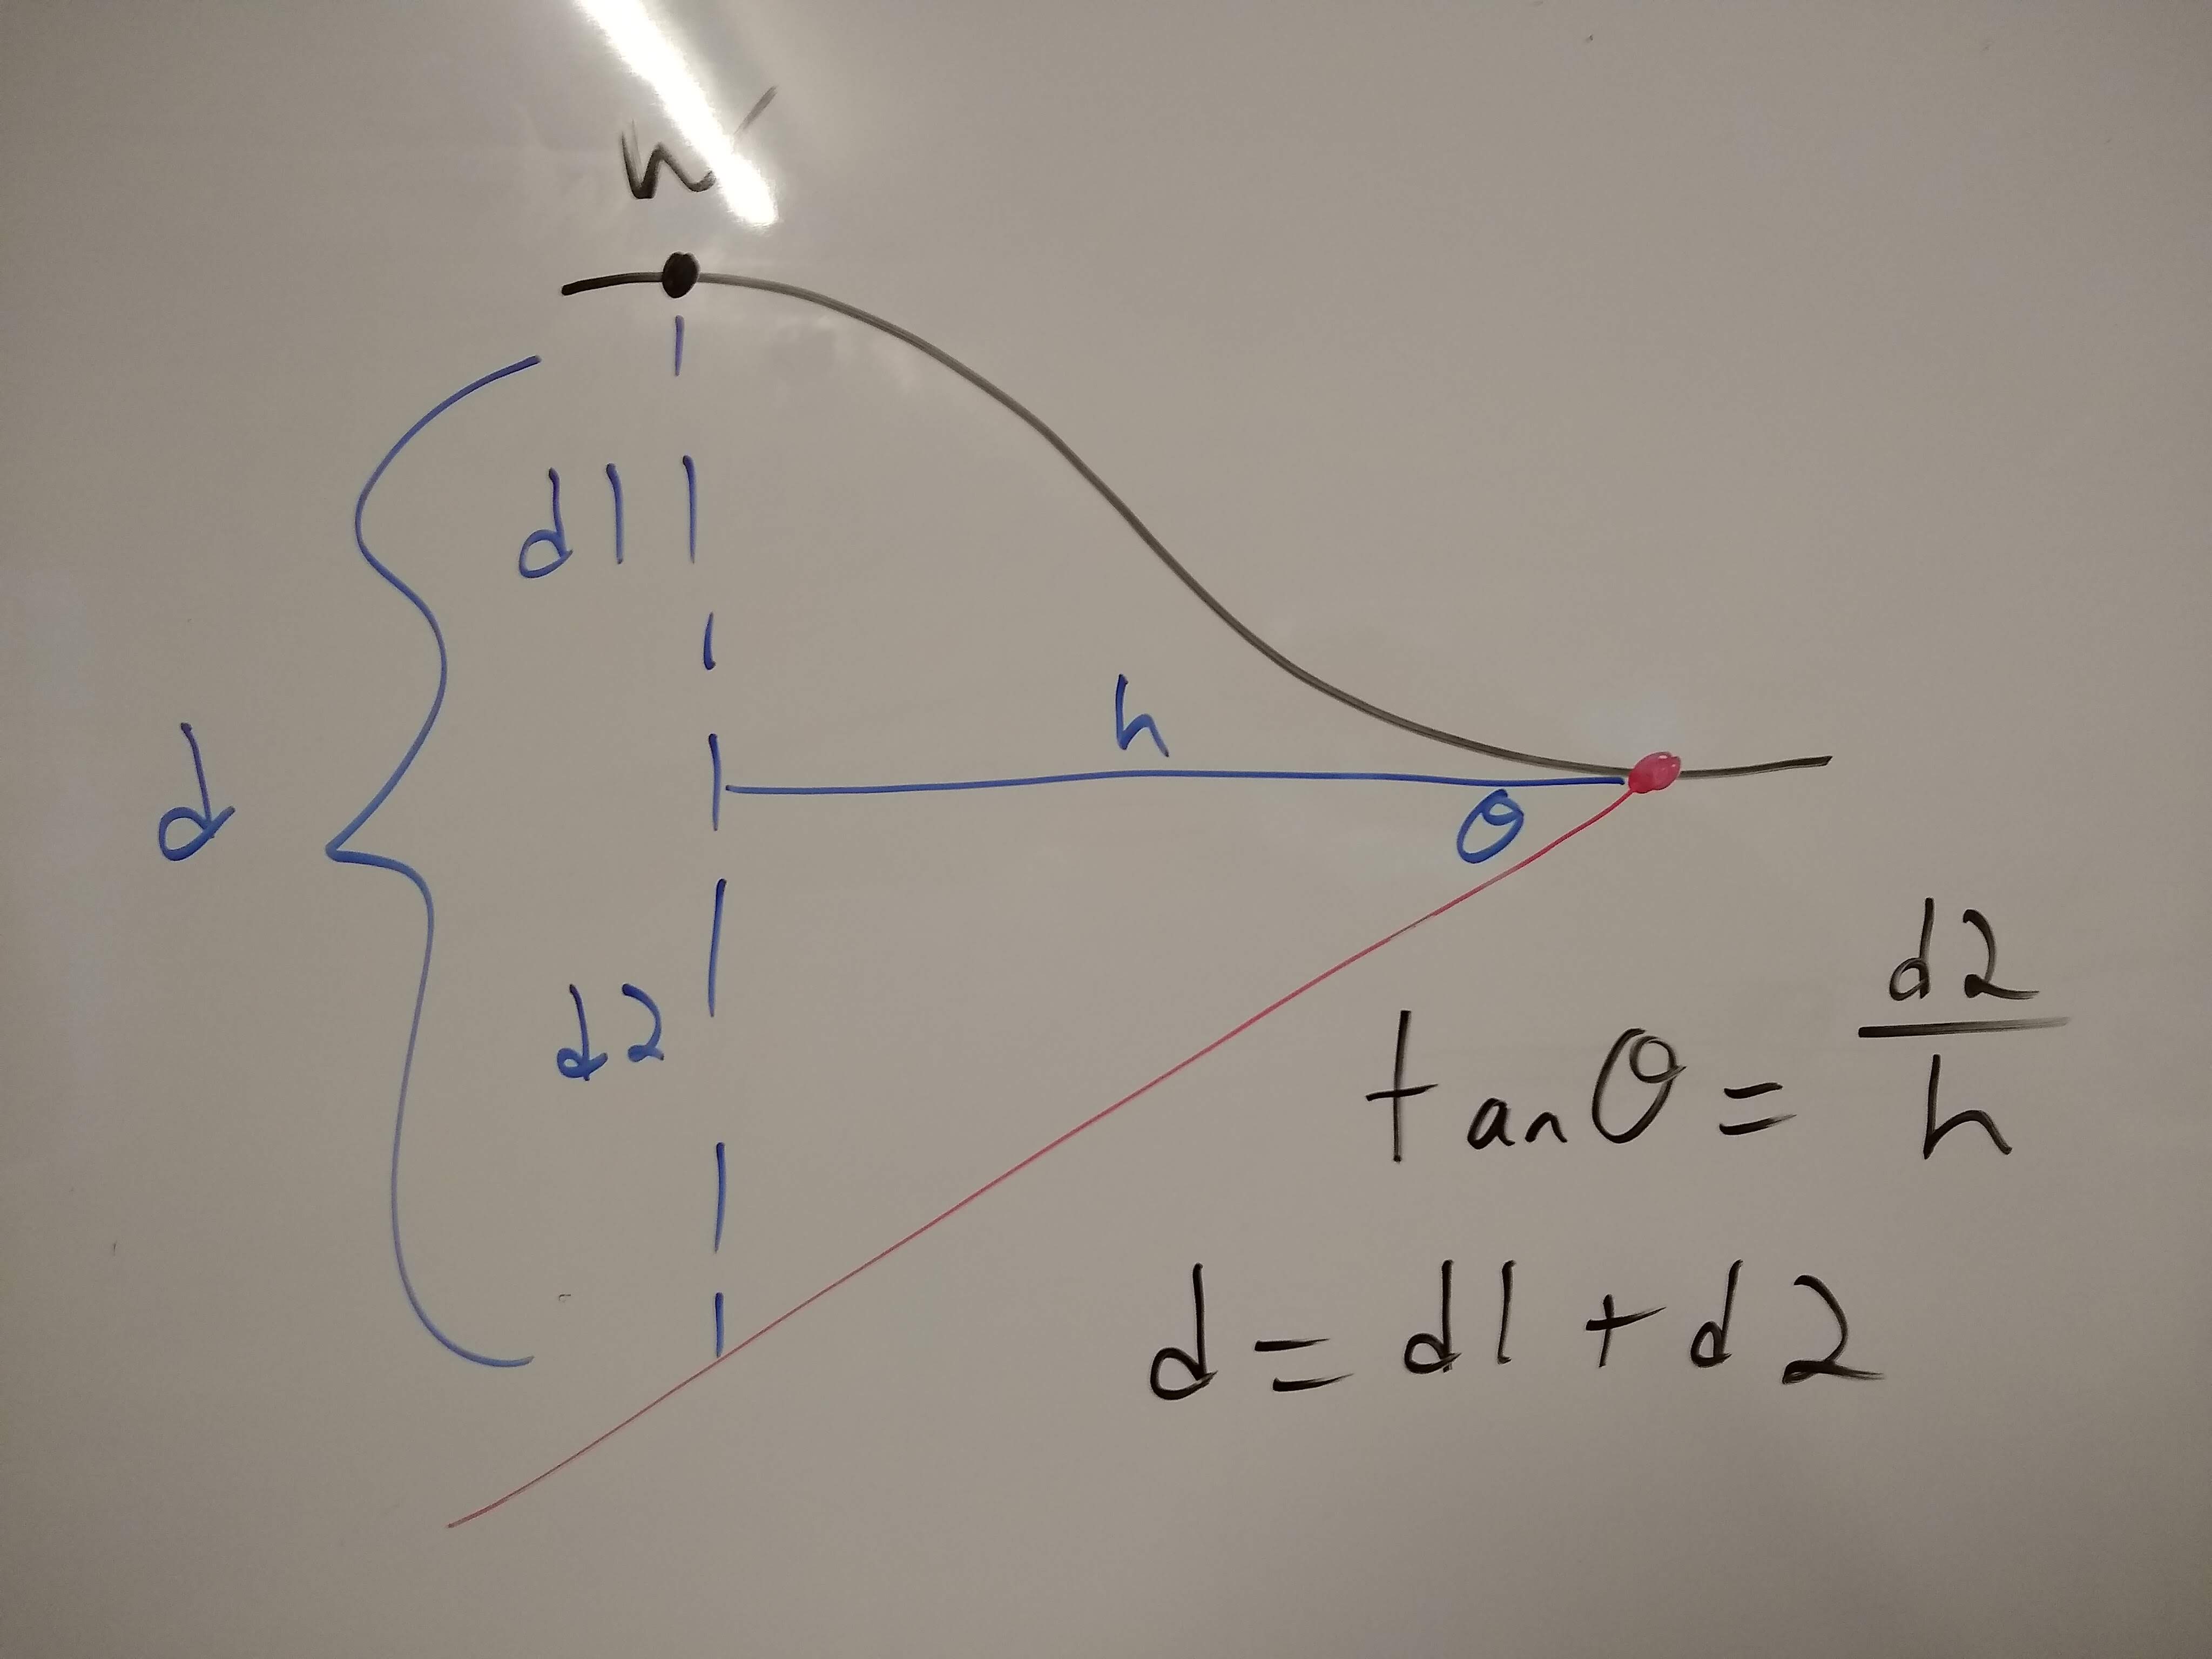 W
d1
h
d
θ
d2
tan θ = d2/h
d = d1 + d2